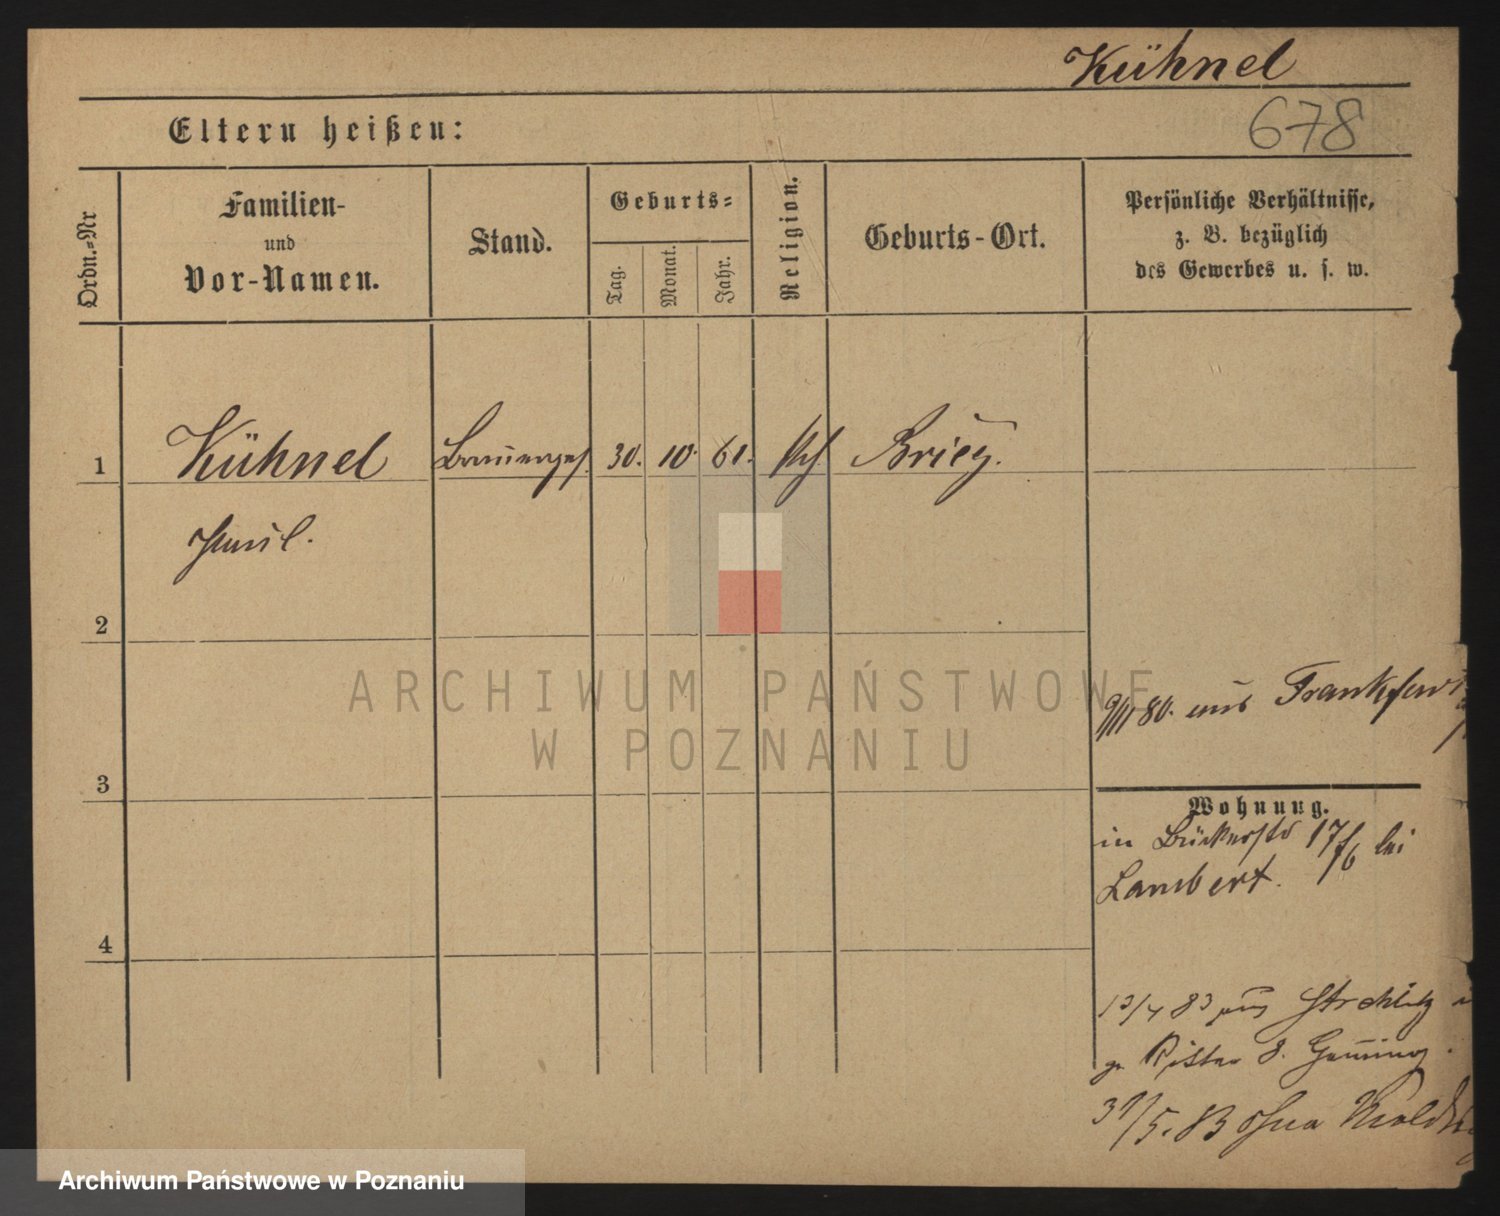 Kühnel
678
Eltern heißen:
Ordn.=Nr
Familien-
und
Vor-Namen.
Stand.
Geburts=
Tag.
Monat.
Jahr.
Religion.
Geburts-Ort.
Persönliche Verhältnisse,
z. B. bezüglich
des Gewerbes u. s. w.
1
Kühnel
30.
10.
61.
Brieg.
Paul.
2
80. aus Frankfurt
3
Wohnung.
in 17/6 bei
Lambert.
4
13/4 83
Ritter 8.
31/5. 83
ARCHIWUM PAŃSTWOWE
W POZNANIU
Archiwum Państwowe w Poznaniu